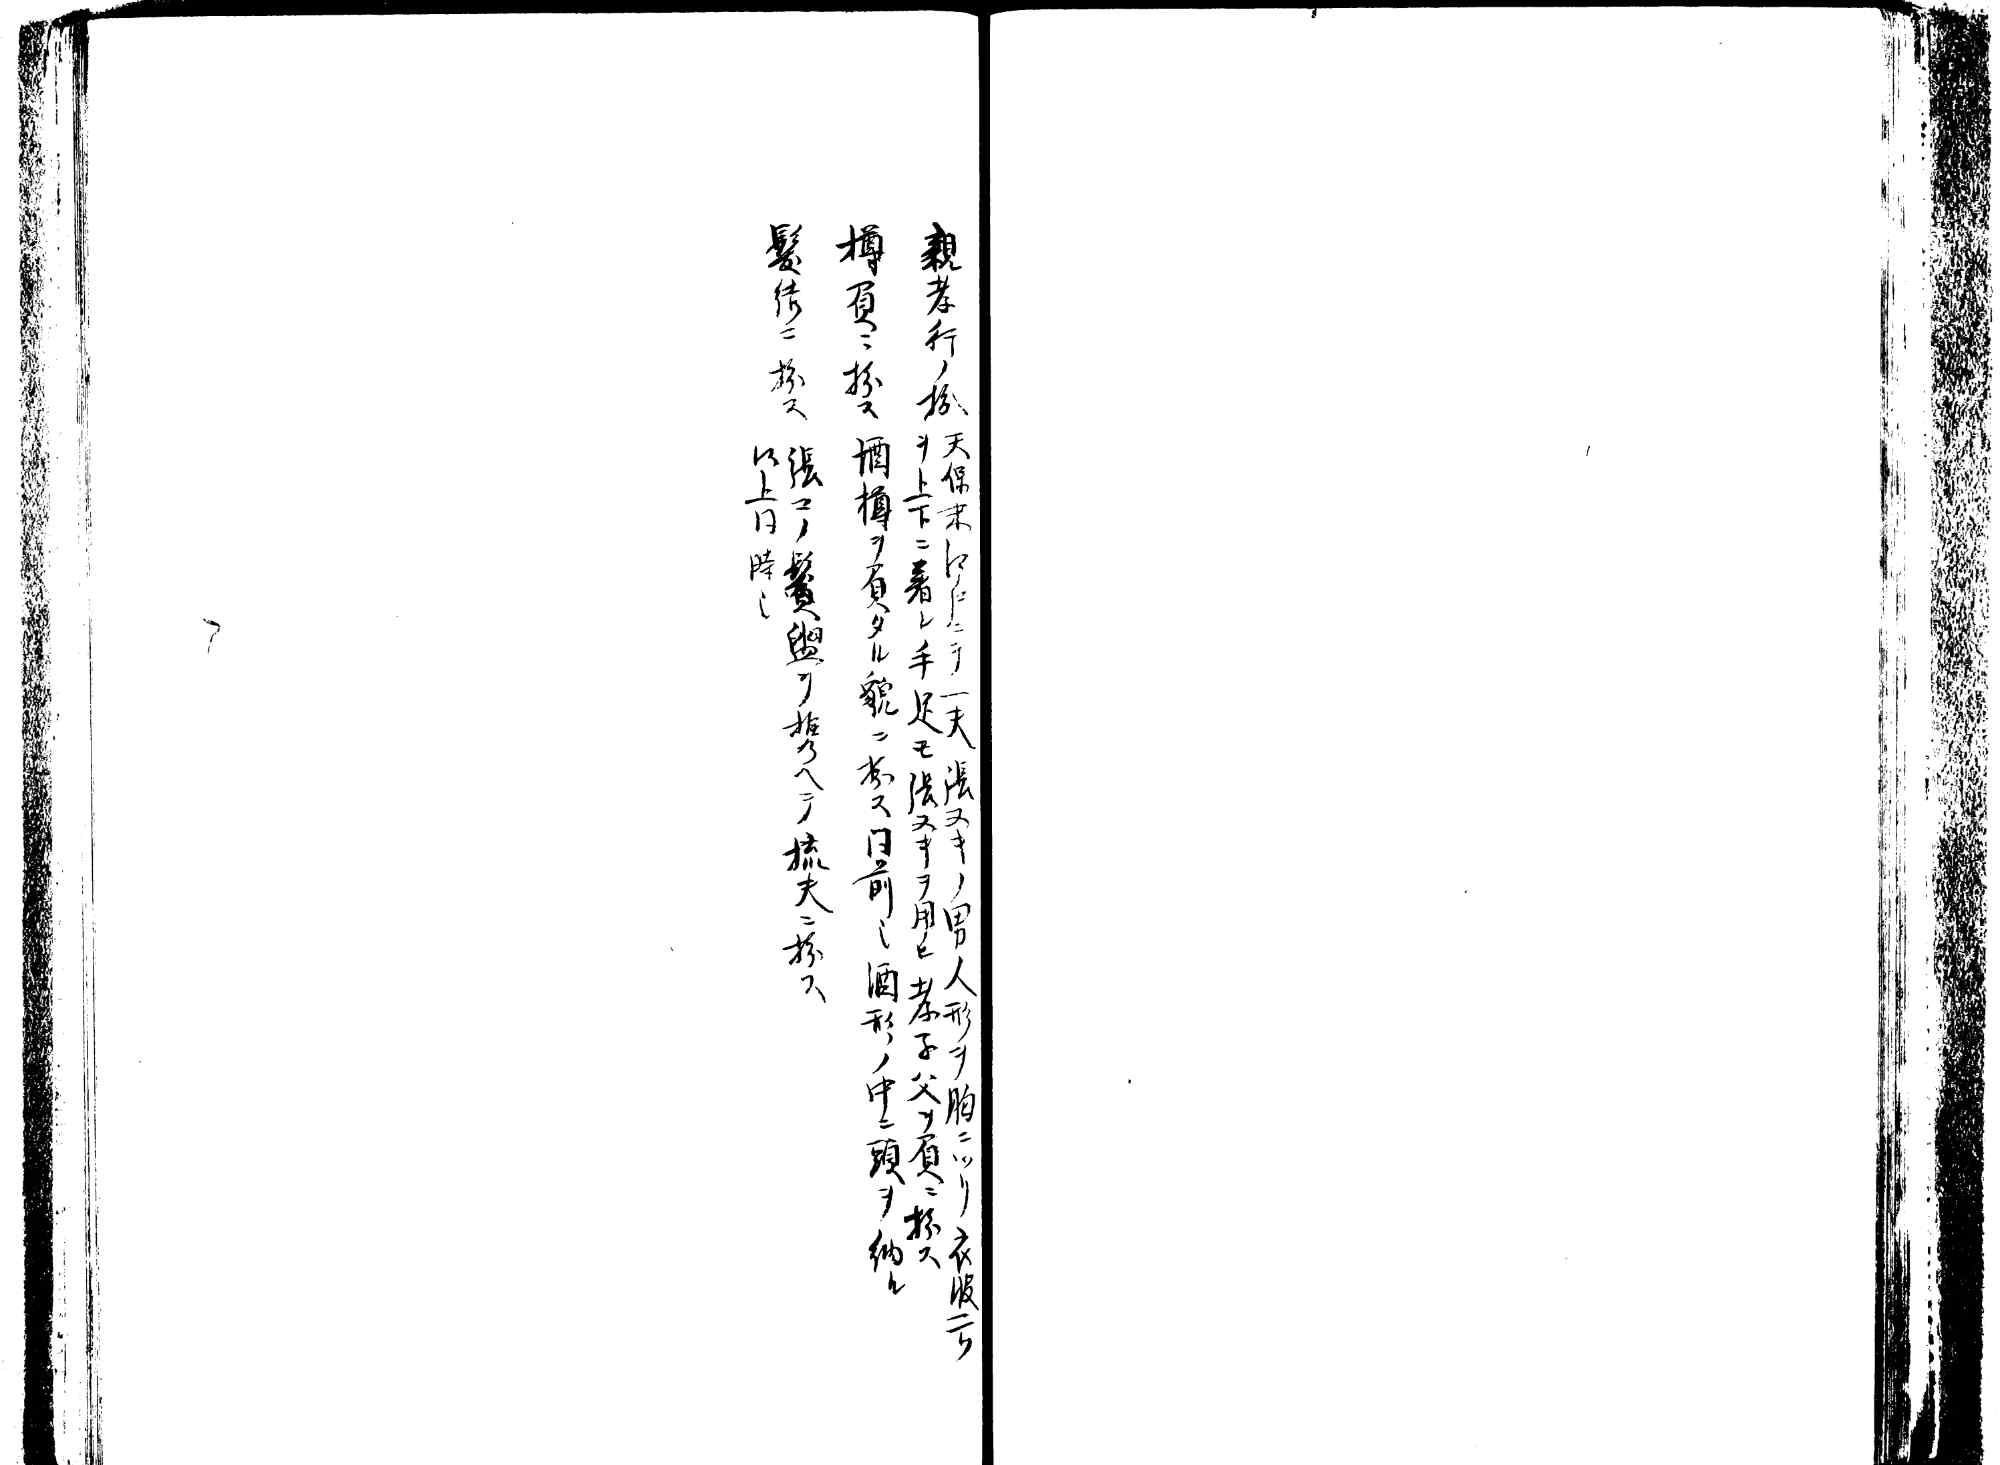 親孝行ノ扮
天保末江戸ニテ一夫張ヌキノ男人形ヲ胸ニツリ衣服二ツ
ヲ上下ニ着シ手足モ張ヌキヲ用ヒ孝子父ヲ負ニ扮ス
樽負ニ扮ス 酒樽ヲ負タル貌ニ扮ス同前也酒形ノ中ニ頭ヲ納ル
髪結ニ扮ス
張コノ鬢盥ヲ携ヘテ梳夫ニ扮ス
以上同時也